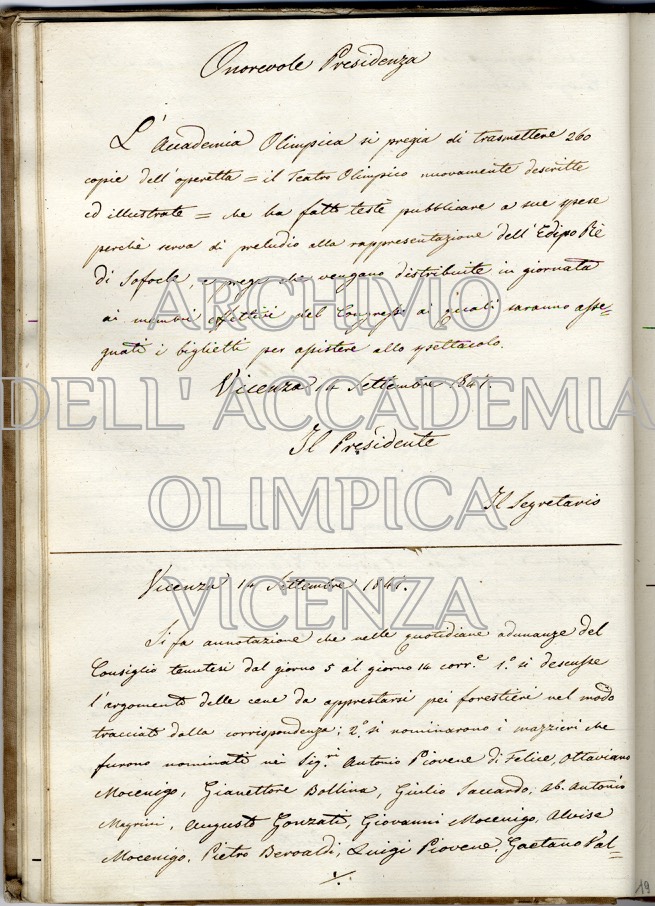 Onorevole Presidenza
L'Accademia Olimpica si pregia di trasmettere 260
copie dell'operetta = il Teatro Olimpico nuovamente descritto
ed illustrato = che ha fatto testè pubblicare a sue spese
perchè serva di preludio alla rappresentazione dell'Edipo Rè
di Sofocle, e prega che vengano distribuite in giornata
ai membri effettivi del Congresso ai quali saranno asse=
gnati i biglietti per assistere allo spettacolo.
Vicenza 14 Settembre 1847.
Il Presidente
Il Segretario
ARCHIVIO
DELL' ACCADEMIA
OLIMPICA
VICENZA
Vicenza 14 Settembre 1847.
Si fa annotazione che nelle quotidiane adunanze del
Consiglio tenutesi dal giorno 5 al giorno 14 corr.e 1.o si discusse
l'argomento delle cene da apprestarsi pei forestieri nel modo
tracciato dalla corrispondenza; 2.o si nominarono i mazzieri che
furono nominati nei Sig.ri Antonio Piovene di Felice, Ottaviano
Mocenigo, Gianettore Bollina, Giulio Saccardo, ab. Antonio
Magrini, Augusto Gonzati, Giovanni Mocenigo, Alvise
Mocenigo, Pietro Beroaldi, Luigi Piovene, Gaetano Val=
19